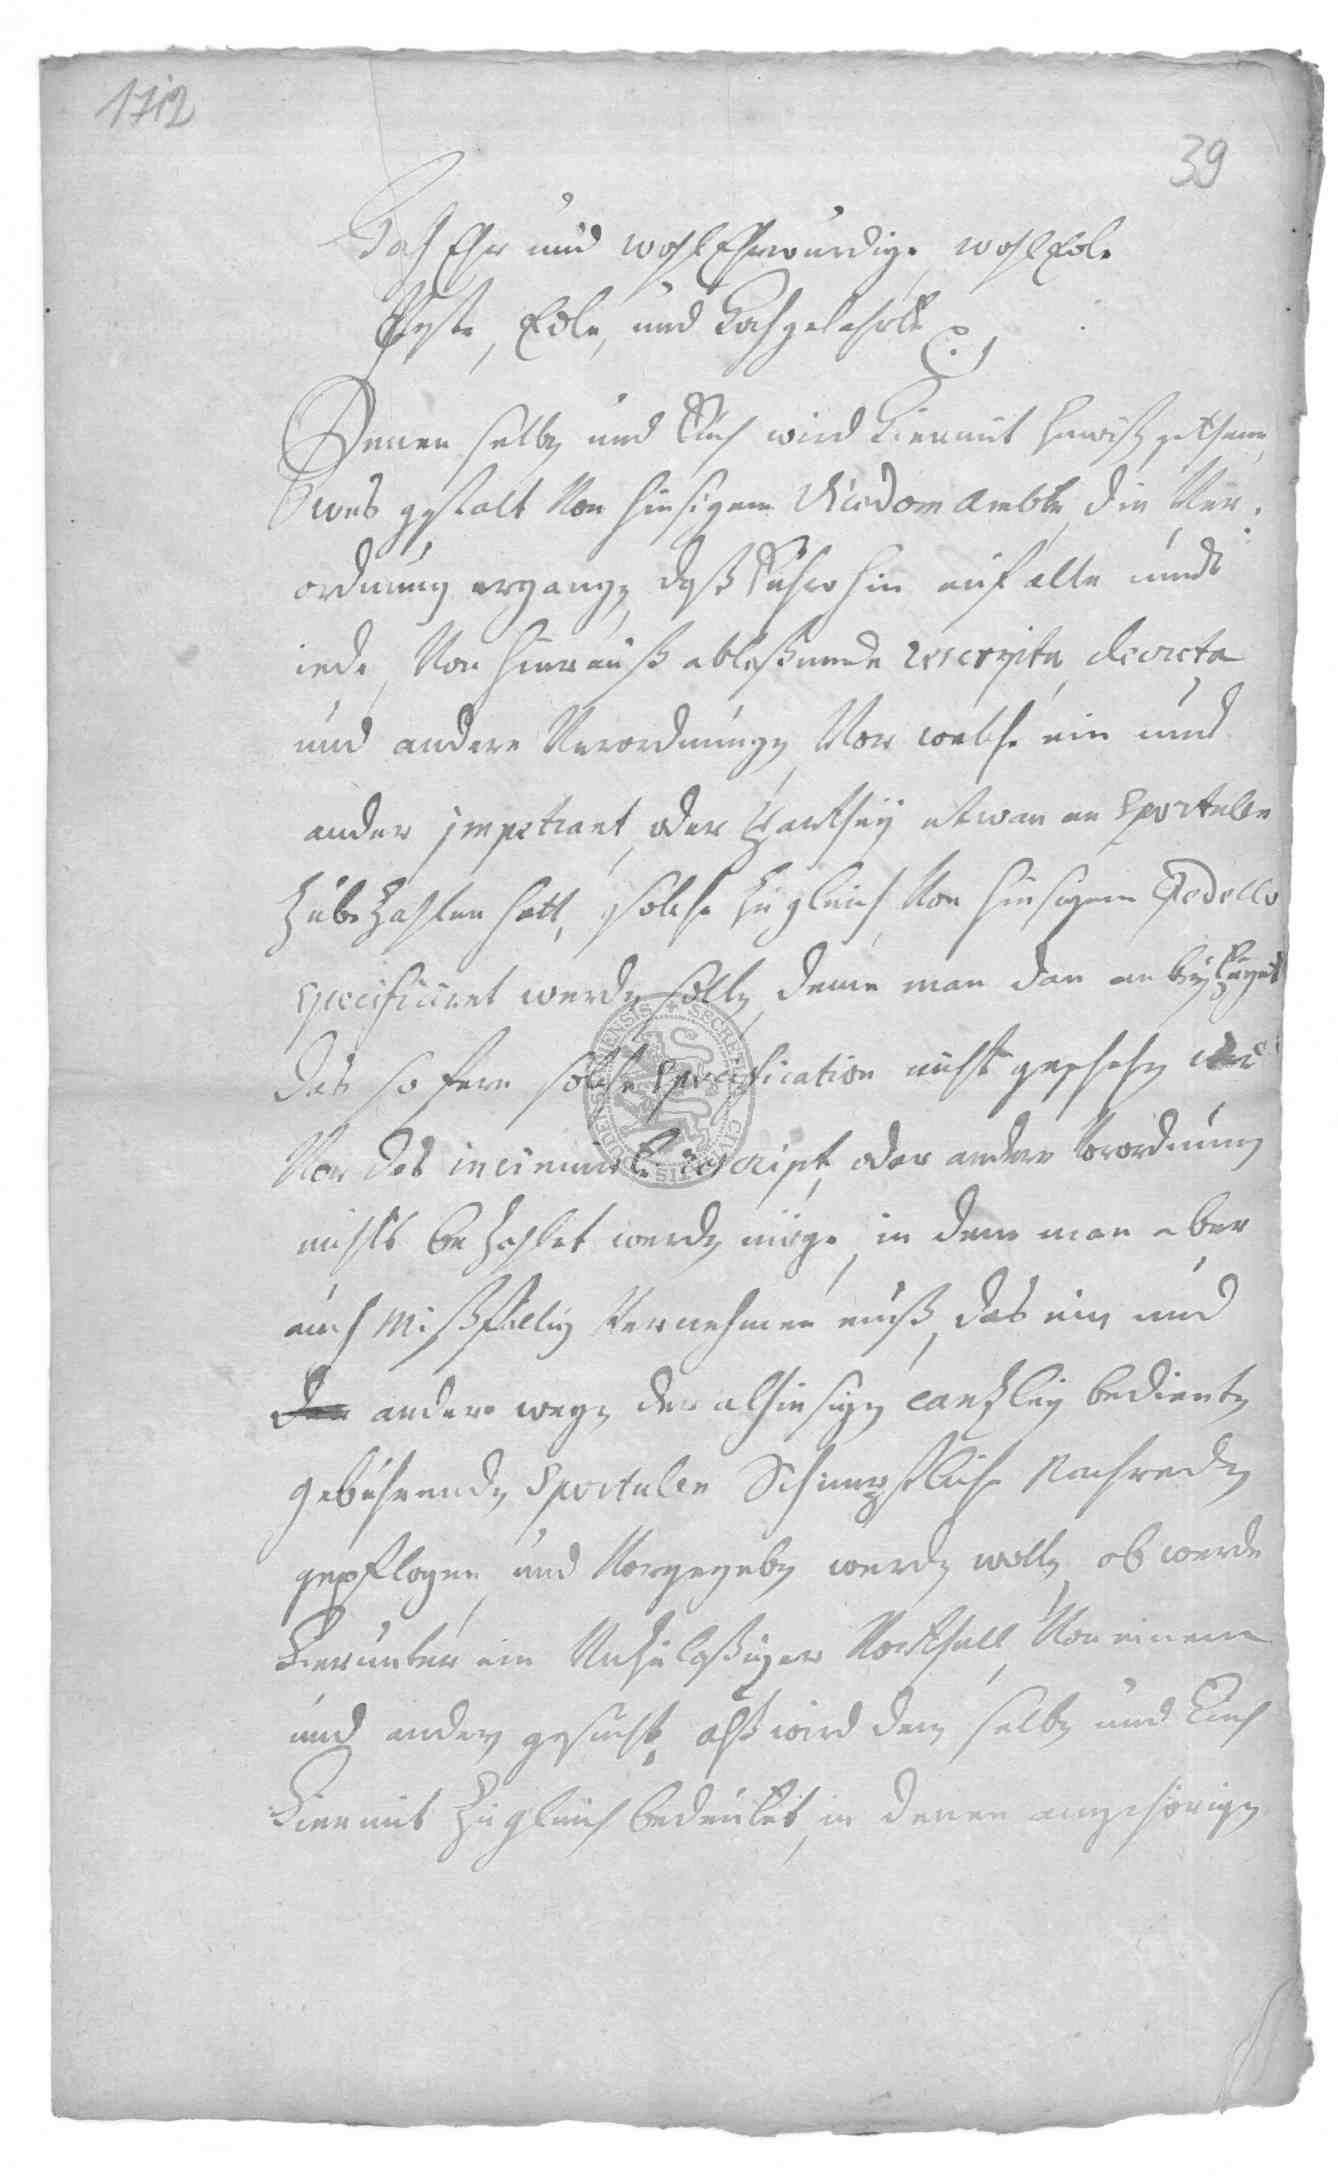 1712
39
Hoch Ehr und wohl Ehrwürdige, wohl Edle
Veste, Edle, und Hochgelehrte
Denen selben und Euch wird hiermit gethane,
was gestalt Von hiesigem Vicedom Ambte, die Ver-
ordnung ergangen, daß führo hin auf alle undt
iede, Von hierauß ablaßende rescripta, decreta
und andere Verordnungen, Vor welche ein und
ander impetrant, oder Parthey etwan an Sportulen
Zube Zahlen hatt, solche Zugleich Von hiesigem Pedello
specificiret werden sollen, deme man dan anbey
das so fern solche specification nicht geschehen
Vor das rescript, oder andere Verordnung
nichts be Zahlet werden möge, in deme man aber
auch Mißfällig Vernehmen muß, das ein und
andere wegen der alhiesigen Cantzley bedienten
gebührenden Sportulen Schimpfliche Nachreden
gepflogen, und Vorgegeben werden wollen, ob werde
hierunter ein Unzuläßiger Vortheil, Von einem
und andern gesucht, alß wird den selben und Euch
hiermit Zugleich bedeutet, in denen angehörigen